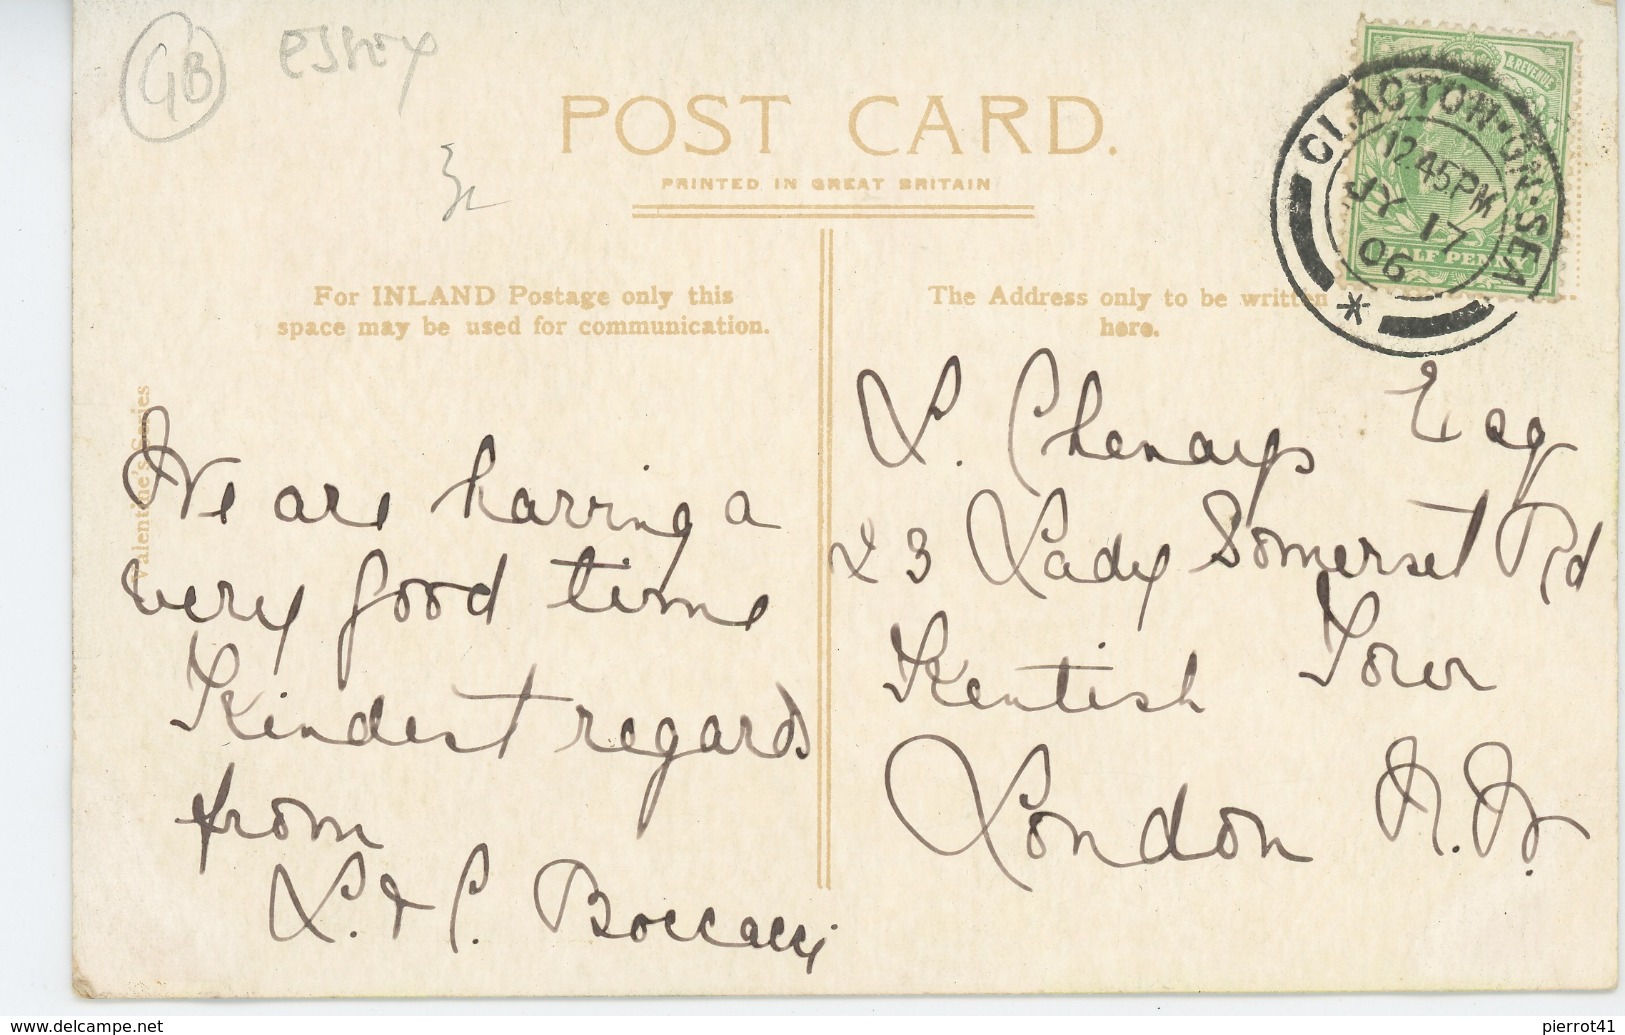 GB essex
POST CARD.
PRINTED IN GREAT BRITAIN
& REVENUE
HALF PENNY
CLACTON-ON-SEA
12.45PM
JY 17
06
For INLAND Postage only this
space may be used for communication.
The Address only to be written
here.
Valentine's Series
We are having a
very good time
Kindest regards
from
L. & C. Boccacci
L. Esq
23 Lady Somerset Rd
Kentish Town
London N.W.
www.delcampe.net
pierrot41